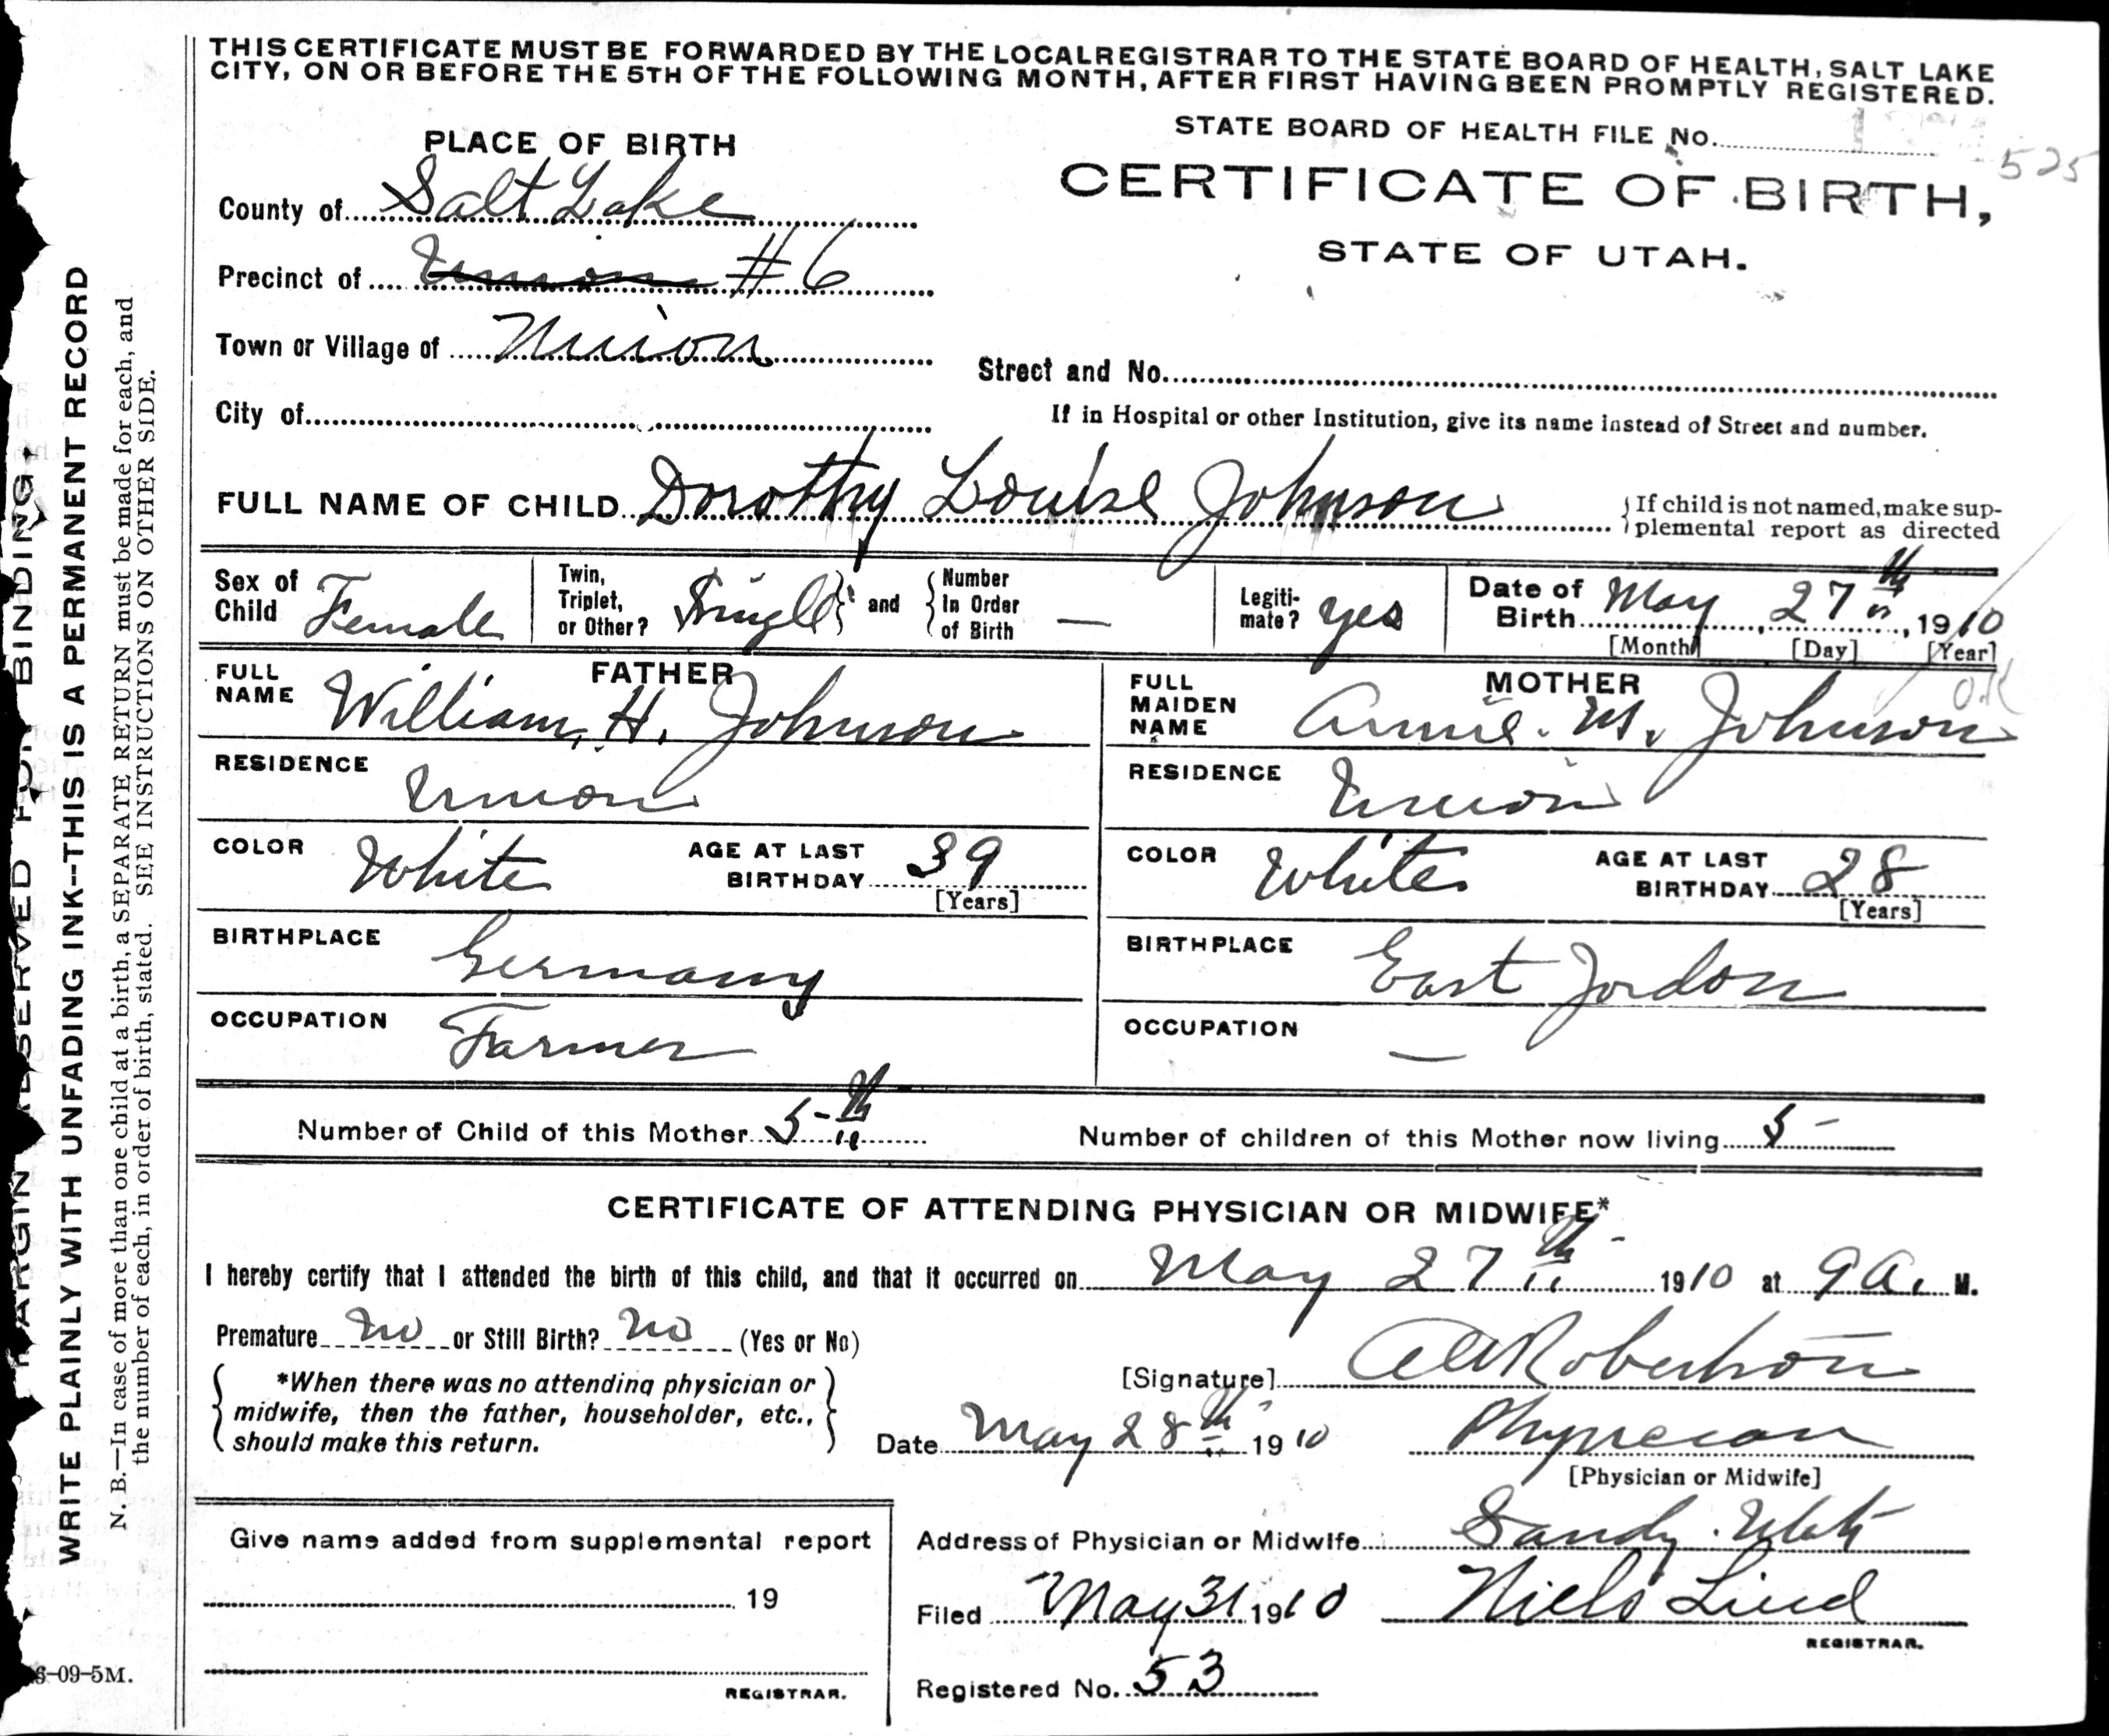 THIS CERTIFICATE MUST BE FORWARDED BY THE LOCAL REGISTRAR TO THE STATE BOARD OF HEALTH, SALT LAKE
CITY, ON OR BEFORE THE 5TH OF THE FOLLOWING MONTH, AFTER FIRST HAVING BEEN PROMPTLY REGISTERED.
STATE BOARD OF HEALTH FILE No.
525
PLACE OF BIRTH
CERTIFICATE OF BIRTH,
STATE OF UTAH.
County of Salt Lake
Precinct of Union #6
Town or Village of Union
Street and No.
City of
If in Hospital or other Institution, give its name instead of Street and number.
FULL NAME OF CHILD Dorothy Louise Johnson
If child is not named, make sup-
plemental report as directed
Sex of Child Female
Twin, Triplet, or Other? Single and Number In Order of Birth —
Legiti-mate? yes
Date of Birth May, 27th, 1910
[Month] [Day] [Year]
FATHER
FULL NAME William, H. Johnson
RESIDENCE Union
COLOR White AGE AT LAST BIRTHDAY 39
[Years]
BIRTHPLACE Germany
OCCUPATION Farmer
MOTHER
OK
FULL MAIDEN NAME Annie. M. Johnson
RESIDENCE Union
COLOR White AGE AT LAST BIRTHDAY 28
[Years]
BIRTHPLACE East Jordon
OCCUPATION —
Number of Child of this Mother 5-th
Number of children of this Mother now living 5-
CERTIFICATE OF ATTENDING PHYSICIAN OR MIDWIFE*
I hereby certify that I attended the birth of this child, and that it occurred on May 27th 1910 at 9 a. M.
Premature no or Still Birth? no (Yes or No)
*When there was no attending physician or
midwife, then the father, householder, etc.,
should make this return.
[Signature] Robertson
Date May 28th 1910 Physician
[Physician or Midwife]
Give name added from supplemental report
19
REGISTRAR.
Address of Physician or Midwife Sandy. Utah
Filed May 31 1910 Niels Lind
REGISTRAR.
Registered No. 53
MARGIN RESERVED FOR BINDING.
WRITE PLAINLY WITH UNFADING INK--THIS IS A PERMANENT RECORD
N. B.—In case of more than one child at a birth, a SEPARATE RETURN must be made for each, and
the number of each, in order of birth, stated. SEE INSTRUCTIONS ON OTHER SIDE.
6-09-5M.